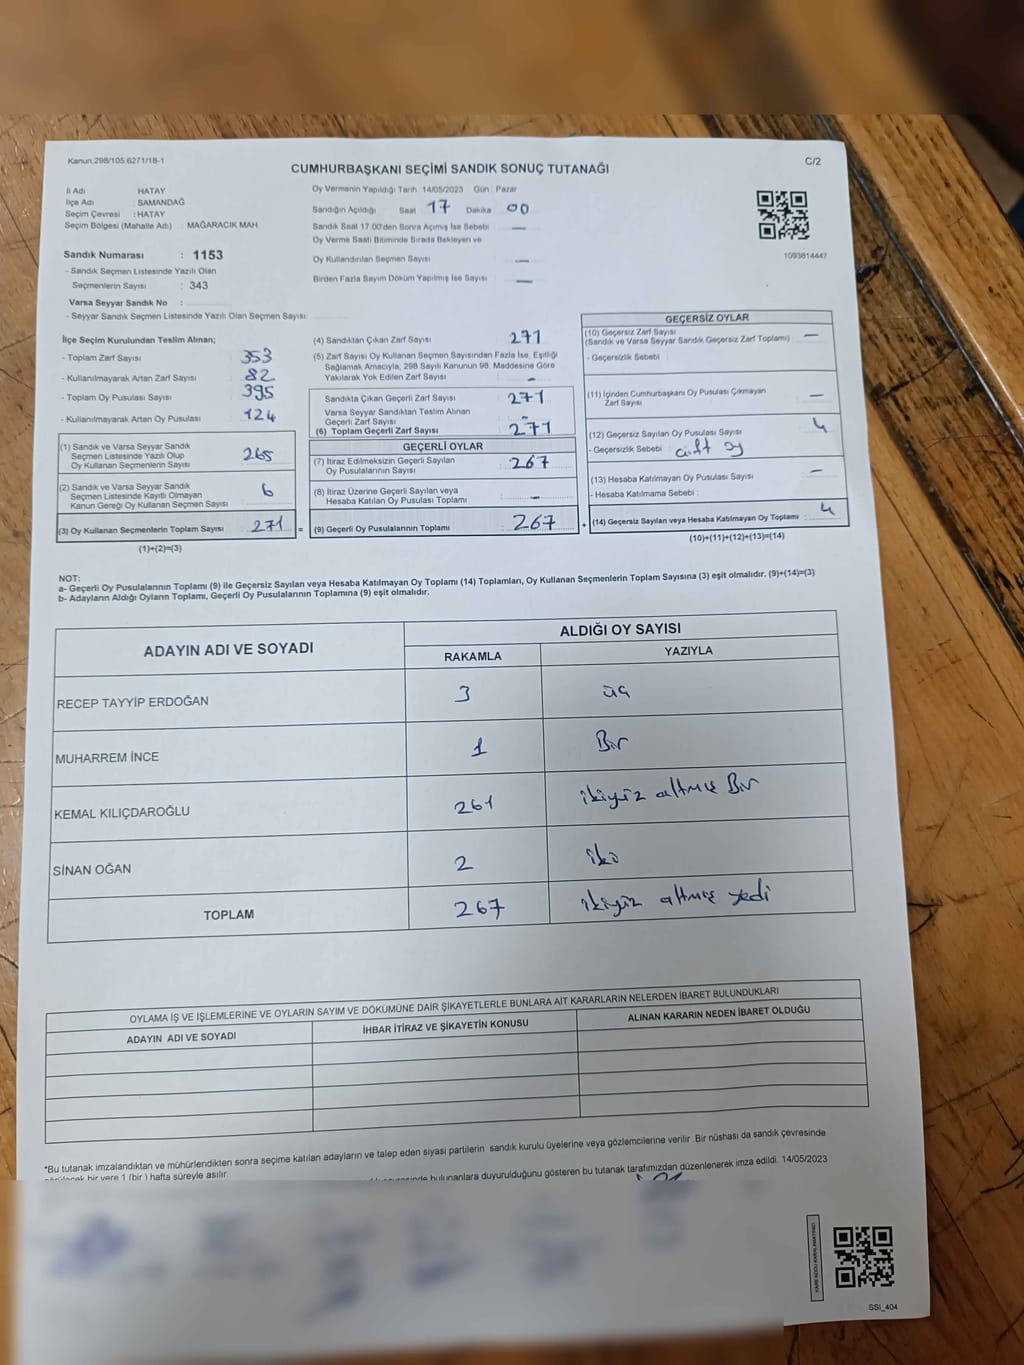 Kanun.298/105,6271/18-1
C/2
CUMHURBAŞKANI SEÇİMİ SANDIK SONUÇ TUTANAĞI
İl Adı HATAY
İlçe Adı : SAMANDAĞ
Seçim Çevresi : HATAY
Seçim Bölgesi (Mahalle Adı) : MAĞARACIK MAH
Oy Vermenin Yapıldığı Tarih 14/05/2023 Gün : Pazar
Sandığın Açıldığı Saat 17 Dakika 00
Sandık Saat 17.00'den Sonra Açımış İse Sebebi —
Oy Verme Saati Bitiminde Sırada Bekleyen ve
Oy Kullandırılan Seçmen Sayısı —
Birden Fazla Sayım Döküm Yapılmış İse Sayısı —
1093814447
Sandık Numarası : 1153
- Sandık Seçmen Listesinde Yazılı Olan
Seçmenlerin Sayısı : 343
Varsa Seyyar Sandık No :
- Seyyar Sandık Seçmen Listesinde Yazılı Olan Seçmen Sayısı:
İlçe Seçim Kurulundan Teslim Alınan;
- Toplam Zarf Sayısı 353
- Kullanılmayarak Artan Zarf Sayısı 82
- Toplam Oy Pusulası Sayısı 395
- Kullanılmayarak Artan Oy Pusulası 124
(1) Sandık ve Varsa Seyyar Sandık
Seçmen Listesinde Yazılı Olup
Oy Kullanan Seçmenlerin Sayısı 265
(2) Sandık ve Varsa Seyyar Sandık
Seçmen Listesinde Kayıtlı Olmayan
Kanun Gereği Oy Kullanan Seçmen Sayısı 6
(3) Oy Kullanan Seçmenlerin Toplam Sayısı 271 =
(1)+(2)=(3)
(4) Sandıktan Çıkan Zarf Sayısı 271
(5) Zarf Sayısı Oy Kullanan Seçmen Sayısından Fazla İse, Eşitliği
Sağlamak Amacıyla, 298 Sayılı Kanunun 98. Maddesine Göre
Yakılarak Yok Edilen Zarf Sayısı -
Sandıkta Çıkan Geçerli Zarf Sayısı 271
Varsa Seyyar Sandıktan Teslim Alınan
Geçerli Zarf Sayısı -
(6) Toplam Geçerli Zarf Sayısı 271
GEÇERLİ OYLAR
(7) İtiraz Edilmeksizin Geçerli Sayılan
Oy Pusulalarının Sayısı 267
(8) İtiraz Üzerine Geçerli Sayılan veya
Hesaba Katılan Oy Pusulası Toplamı -
(9) Geçerli Oy Pusulalarının Toplamı 267 +
GEÇERSİZ OYLAR
(10) Geçersiz Zarf Sayısı
(Sandık ve Varsa Seyyar Sandık Geçersiz Zarf Toplamı) —
- Geçersizlik Sebebi
(11) İçinden Cumhurbaşkanı Oy Pusulası Çıkmayan
Zarf Sayısı —
(12) Geçersiz Sayılan Oy Pusulası Sayısı 4
- Geçersizlik Sebebi çift oy
(13) Hesaba Katılmayan Oy Pusulası Sayısı —
- Hesaba Katılmama Sebebi :
(14) Geçersiz Sayılan veya Hesaba Katılmayan Oy Toplamı 4
(10)+(11)+(12)+(13)=(14)
NOT:
a- Geçerli Oy Pusulalarının Toplamı (9) ile Geçersiz Sayılan veya Hesaba Katılmayan Oy Toplamı (14) Toplamları, Oy Kullanan Seçmenlerin Toplam Sayısına (3) eşit olmalıdır. (9)+(14)=(3)
b- Adayların Aldığı Oyların Toplamı, Geçerli Oy Pusulalarının Toplamına (9) eşit olmalıdır.
ADAYIN ADI VE SOYADI
ALDIĞI OY SAYISI
RAKAMLA YAZIYLA
RECEP TAYYİP ERDOĞAN 3 üç
MUHARREM İNCE 1 Bir
KEMAL KILIÇDAROĞLU 261 ikiyüz altmış Bir
SİNAN OĞAN 2 iki
TOPLAM 267 ikiyüz altmış yedi
OYLAMA İŞ VE İŞLEMLERİNE VE OYLARIN SAYIM VE DÖKÜMÜNE DAİR ŞİKAYETLERLE BUNLARA AİT KARARLARIN NELERDEN İBARET BULUNDUKLARI
ADAYIN ADI VE SOYADI İHBAR İTİRAZ VE ŞİKAYETİN KONUSU ALINAN KARARIN NEDEN İBARET OLDUĞU
*Bu tutanak imzalandıktan ve mühürlendikten sonra seçime katılan adayların ve talep eden siyasi partilerin sandık kurulu üyelerine veya gözlemcilerine verilir Bir nüshası da sandık çevresinde
bir yere 1 (bir ) hafta süreyle asılır.
bulunanlara duyurulduğunu gösteren bu tutanak tarafımızdan düzenlenerek imza edildi. 14/05/2023
SSI_404